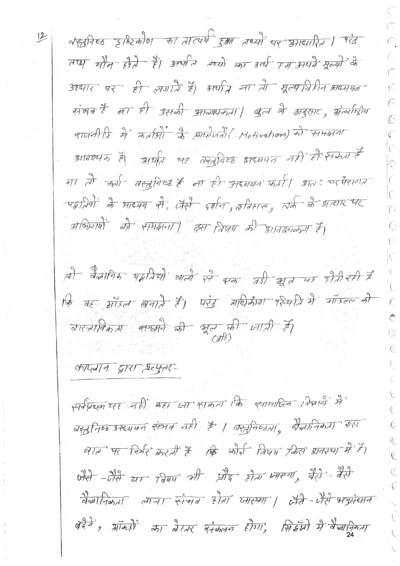 12
वस्तुनिष्ठ दृष्टिकोण का तात्पर्य हुआ तथ्यों पर आधारित। परंतु
तथ्य मौन होते हैं। अर्थात तथ्यों का अर्थ हम अपने मूल्यों के
आधार पर ही लगाते हैं। अर्थात ना तो मूल्यविहीन अध्ययन
संभव है ना ही उसकी आवश्यकता। बुल के अनुसार, अंतर्राष्ट्रीय
राजनीति में कर्ताओं के प्रयोजनों (Motivation) को समझना
आवश्यक है। अर्थात यह वस्तुनिष्ठ अध्ययन नहीं हो सकता है
ना तो कर्ता वस्तुनिष्ठ है ना ही अध्ययन कर्ता। अतः परंपरागत
पद्धतियों के माध्यम से, जैसे दर्शन, इतिहास, तर्क के आधार पर
अभिप्रायों को समझना। इस विषय की आवश्यकता है।
वो वैज्ञानिक पद्धतियों वालों से एक बड़ी भूल यह होती रही है
कि वह मॉडल बनाते हैं। परंतु अधिकांश स्थिति में मॉडल को
वास्तविकता समझने की भूल की जाती है।
(भी)
काप्लान द्वारा प्रत्युत्तर:-
सर्वप्रथम यह नहीं कहा जा सकता कि सामाजिक विज्ञानों में
वस्तुनिष्ठ अध्ययन संभव नहीं है। वस्तुनिष्ठता, वैज्ञानिकता इस
बात पर निर्भर करती है कि कोई विषय किस अवस्था में है।
जैसे-जैसे यह विषय भी प्रौढ़ होता जाएगा, वैसे-वैसे
वैज्ञानिकता लाना संभव होता जाएगा। जैसे-जैसे अनुसंधान
बढ़ेंगे, आँकड़ों का बेहतर संकलन होगा, सिद्धांतों में वैज्ञानिकता
24